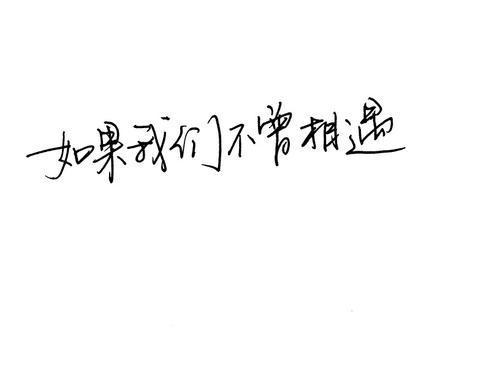 如果我们不曾相遇